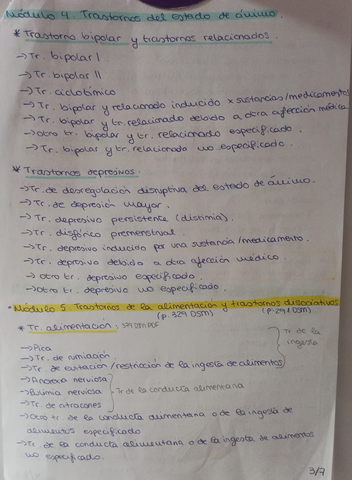 Módulo 4. Trastornos del estado de ánimo.
* Trastorno bipolar y trastornos relacionados.
→ Tr. bipolar I
→ Tr. bipolar II
→ Tr. ciclotímico
→ Tr. bipolar y relacionado inducido x sustancias/medicamentos
→ Tr. bipolar y tr. relacionado debido a otra afección médica
→ Otro tr. bipolar y tr. relacionado especificado.
→ Tr. bipolar y tr. relacionado no especific.
* Trastornos depresivos.
→ Tr. de desregulación disruptiva del estado de ánimo.
→ Tr. de depresión mayor.
→ Tr. depresivo persistente (distimia).
→ Tr. disfórico premenstrual.
→ Tr. depresivo inducido por una sustancia/medicamento.
→ Tr. depresivo debido a otra afección médica.
→ Otro tr. depresivo especificado.
→ Tr. depresivo no especificado.
• Módulo 5. Trastornos de la alimentación y trastornos disociativos
(p. 329 DSM) (p. 291 DSM)
* Tr. alimentación: DSM PDF
→ Pica
→ Tr. de rumiación
→ Tr. de evitación/restricción de la ingesta de alimentos
Tr de la ingesta
→ Anorexia nerviosa
→ Bulimia nerviosa
→ Tr. de atracones
Tr de la conducta alimentaria
→ Otro tr. de la conducta alimentaria o de la ingesta de
alimentos especificado
→ Tr. de la conducta alimentaria o de la ingesta de alimentos
no especificado.
3/7